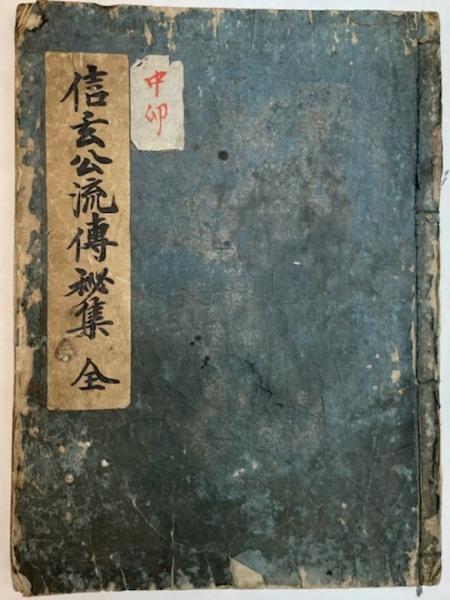 中卯
信玄公流傳秘集 全